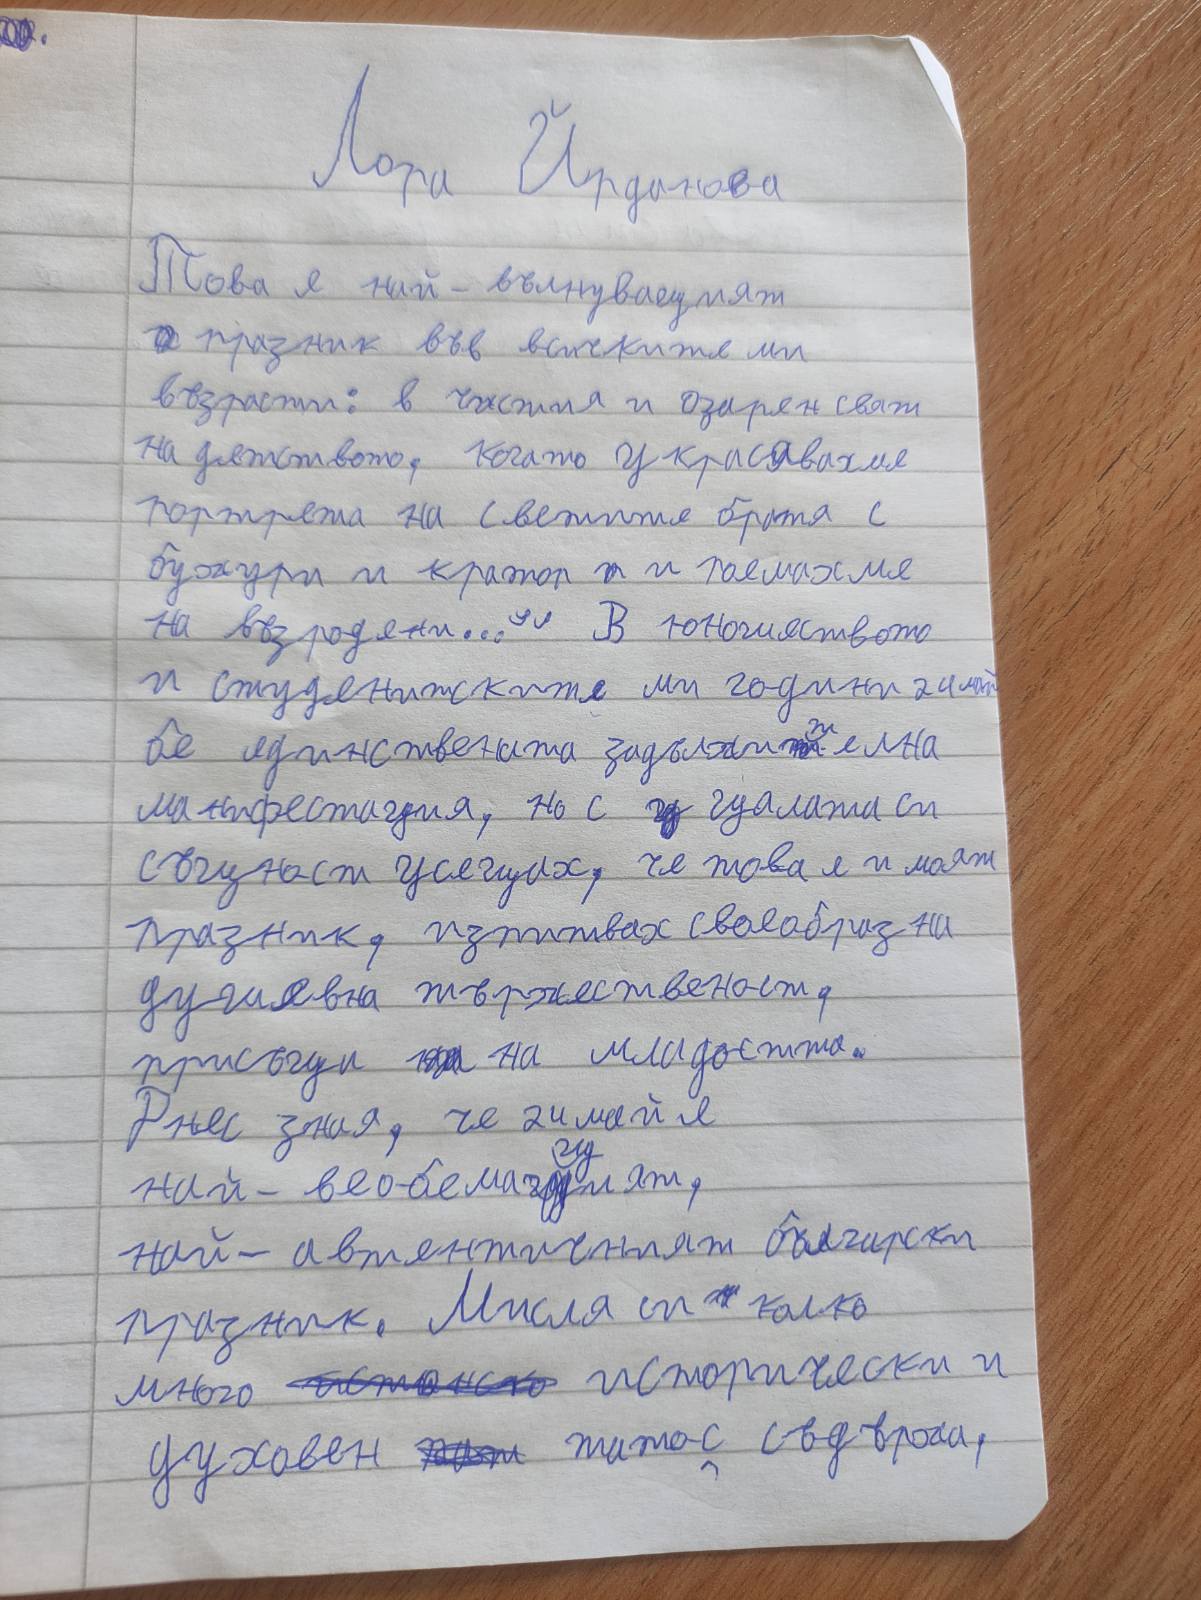 Лора Йрданова
Това е най-вълнуваещият
празник във всичките ми
възрасти: в чистия и озарен свят
на детството, когато украсявахме
портрета на светите братя с
бужури и кратон и поемахме
на възродени...“ В юношеството
и студентските ми години 24 май
бе единствената задължителна
манифестация, но с цялата си
същност усещах, че това е и моят
празник, изпитвах своеобразна
душевна тържественост,
присъщи на младостта.
Днес зная, че 24 май е
най-веобемащият,
най-автентичният български
празник. Мисля си колко
много исторически и
духовен патос съдврожа,